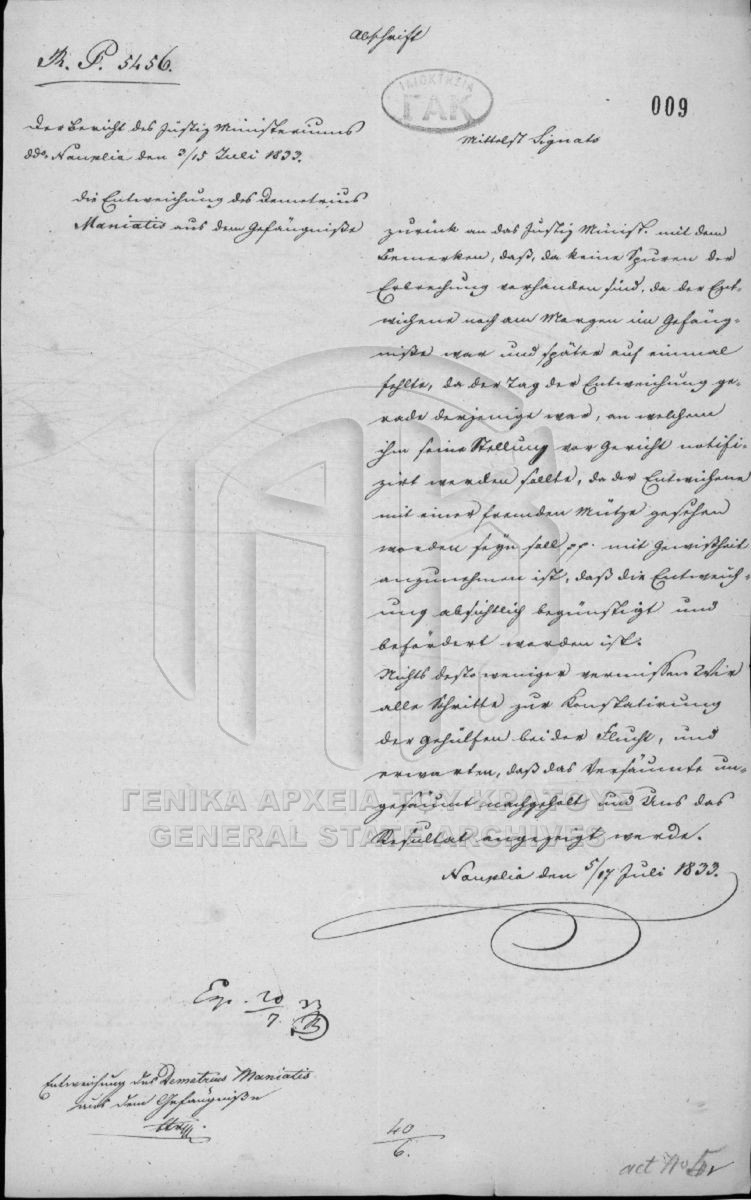 Abschrift
R. P. 5456.
ΙΔΙΟΚΤΗΣΙΑ
ΓΑΚ
009
Der Bericht des Justiz Ministeriums
ddo Nauplia den 3/15 Juli 1833.
Mittelst Signats
die Entweichung des Demetrius
Maniatis aus dem Gefängniße
zurück an das Justiz Minist. mit dem
Bemerken, daß, da keine Spuren der
Erbrechung vorhanden sind, da der Ent-
wichene noch am Morgen im Gefäng-
niße war und später auf einmal
fehlte, da der Tag der Entweichung ge-
rade derjenige war, an welchem
ihm seine Stellung vor Gericht notifi-
zirt werden sollte, da der Entwichene
mit einer fremden Mütze gesehen
worden seyn soll pp. mit Gewißheit
anzunehmen ist, daß die Entweich-
ung absichtlich begünstigt und
befördert worden ist.
Nichts desto weniger vermissen Wir
alle Schritte zur Konstatirung
der Gehülfen bei der Flucht, und
erwarten, daß das Versäumte un-
gesäumt nachgeholt und Uns das
Resultat angezeigt werde.
Nauplia den 5/17 Juli 1833.
ΓΕΝΙΚΑ ΑΡΧΕΙΑ ΤΟΥ ΚΡΑΤΟΥΣ
GENERAL STATE ARCHIVES
Exp. 20/7. 33
Entweichung des Demetrius Maniatis
aus dem Gefängniße
40/6.
act No